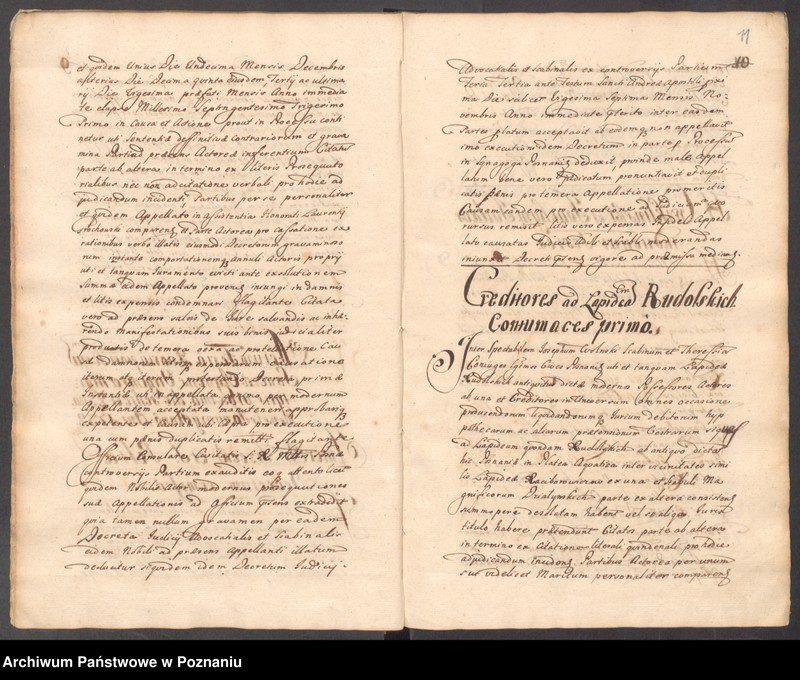 et eadem Unius Die Undecima Mensis Decembris
alterius Die Decima quinta ejusdem Tertij ac ultima
rij Die Vigesima præfati Mensis Anno immedia
te elapso Millesimo Septingentesimo Trigesimo
Primo in Causa et Actione prout in Processu conti
netur uti Sententia deffinitiva contrariorum et grava
mina Partium præsens Actorea inferentium Citatus
parte ab altera in termino ex literis Prosequuto
rialibus nec non adcitatione verbali pro hodie ad
judicandum incidenti Partibus per se personaliter
et quidem Appellato in assistentia Honorati Laurentij
comparens et Parte Actorea pro cassatione ex
rationibus verbo illatis ejusmodi Decretorum gravamino
rum instanto comportationem Annuli Actoris proprij
uti et tanquam Juramento evicti ante exsolutionem
Summæ eidem Appellato provenien injungi in damnis
et litis expensis condemnari flagitante Citata
vero ad præsens salvis de Jure salvandis ac inhæ
rendo manifestationibus suis binis judicialiter
productis de temera
Decreta primæ
Instantiæ uti in appellata primo per modernum
Appellantem acceptata manuteneri approbariq
pro executione
una cum pænis duplicatis remitti flagitante
Officium Consulare Civitatis S. R. Mttis Posnan
controversijs Partium exauditis eoq attento licet
quidem Nobilis Actor modernus prosequutioneo
suæ Appellationis ad Officium præsens extradedit
quia tamen nullum gravamen per eadem
Decreta Judicij Advocatialis et Scabinalis
eidem Nobili ad præsens Appellanti illatum
deducitur siquidem idem Decretum Judicij
11
10
Advocatialis et Scabinalis ex controversijs Partium
Feria Tertia ante Festum Sancti Andreæ Apostoli proxi
ma Die scilicet Vigesima Septima Mensis No
vembris Anno immediate præterito inter easdem
Partes platum acceptavit ab eodemq non appellavit
imo executioni idem Decretum in parte Processus
in Synagoga Posnanien deduxit proinde male Appel
latum bene vero Judicatum pronuntiavit et dupli
catis pænis pro temera Appellatione promeritis
Causam eandem pro executione ad Judicium
rursus remisit litis vero expensas Judeo Appel
lato causatas Judicio moderandas
injunxit Decreti præsens vigore ad præmissa median.
Creditores ad Lapideam Rudolskich
Contumaces primo.
Inter Spectabilem Josephum Scabinum et Theresiam
Conjuges Cives Posnanien uti et tanquam Lapideæ
Rudolskich antiquitus dictæ modernos Possessores Actores
ab una et Creditores in Universum omnes occasione
producendorum liquidandorumq Jurium debitorum hyp
pothecarum ac aliarum prætensionum Contrarium siquas
ad Lapideam quondam Rudolskich ab antiquo dictam
hic Posnaniæ in Platea Aquatica inter vicinitates simi
lis Lapideæ ex una et Stabuli Ma
gnificorum Dzialynskich parte ex altera consisten
summopere desolatam habent vel se aliquo Juris
titulo habere prætendunt Citatos parte ab altera
in termino ex Citatione literali quindenali pro hodie
adjudicandum inciden. Partibus Actorea per unum
sui videlicet Maritum personaliter comparen
Archiwum Państwowe w Poznaniu